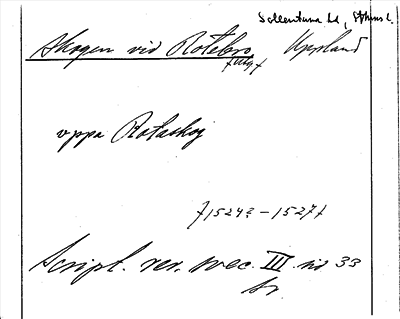 Sollentuna hd, Sthms l.
Skogen vid Rotebro Uppland
uppa Rotaskog
†1524?-1527†
Script. rer. svec. III sid 33
br